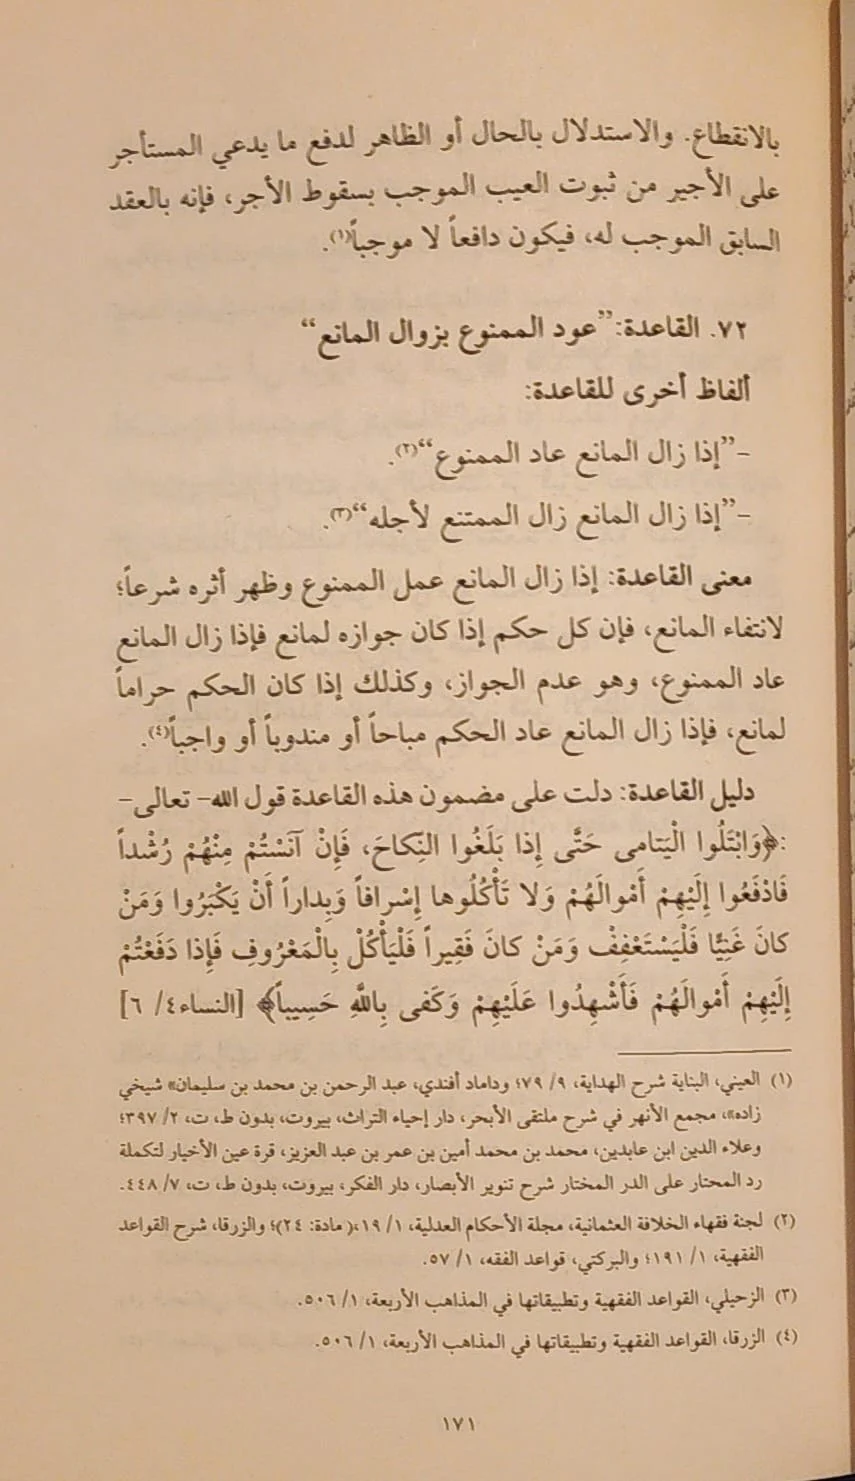 بالانقطاع. والاستدلال بالحال أو الظاهر لدفع ما يدعي المستأجر
على الأجير من ثبوت العيب الموجب بسقوط الأجر، فإنه بالعقد
السابق الموجب له، فيكون دافعاً لا موجباً(١).
٧٢. القاعدة:”عود الممنوع بزوال المانع“
ألفاظ أخرى للقاعدة:
-”إذا زال المانع عاد الممنوع“(٢).
-”إذا زال المانع زال الممتنع لأجله“(٣).
معنى القاعدة: إذا زال المانع عمل الممنوع وظهر أثره شرعاً؛
لانتفاء المانع، فإن كل حكم إذا كان جوازه لمانع فإذا زال المانع
عاد الممنوع، وهو عدم الجواز، وكذلك إذا كان الحكم حراماً
لمانع، فإذا زال المانع عاد الحكم مباحاً أو مندوباً أو واجباً(٤).
دليل القاعدة: دلت على مضمون هذه القاعدة قول الله- تعالى-
:﴿وَابْتَلُوا الْيَتامى حَتَّى إِذا بَلَغُوا النِّكاحَ، فَإِنْ آنَسْتُمْ مِنْهُمْ رُشْداً
فَادْفَعُوا إِلَيْهِمْ أَمْوالَهُمْ وَلا تَأْكُلُوها إِسْرافاً وَبِداراً أَنْ يَكْبَرُوا وَمَنْ
كانَ غَنِيًّا فَلْيَسْتَعْفِفْ وَمَنْ كانَ فَقِيراً فَلْيَأْكُلْ بِالْمَعْرُوفِ فَإِذا دَفَعْتُمْ
إِلَيْهِمْ أَمْوالَهُمْ فَأَشْهِدُوا عَلَيْهِمْ وَكَفى بِاللَّهِ حَسِيباً﴾ [النساء٤/ ٦]
(١) العيني، البناية شرح الهداية، ٩/ ٧٩؛ وداماد أفندي، عبد الرحمن بن محمد بن سليمان» شيخي
زاده»، مجمع الأنهر في شرح ملتقى الأبحر، دار إحياء التراث، بيروت، بدون ط، ت، ٢/ ٣٩٧؛
وعلاء الدين ابن عابدين، محمد بن محمد أمين بن عمر بن عبد العزيز، قرة عين الأخيار لتكملة
رد المحتار على الدر المختار شرح تنوير الأبصار، دار الفكر، بيروت، بدون ط، ت، ٧/ ٤٤٨.
(٢) لجنة فقهاء الخلافة العثمانية، مجلة الأحكام العدلية، ١/ ١٩،( مادة: ٢٤)؛ والزرقا، شرح القواعد
الفقهية، ١/ ١٩١؛ والبركتي، قواعد الفقه، ١/ ٥٧.
(٣) الزحيلي، القواعد الفقهية وتطبيقاتها في المذاهب الأربعة، ١/ ٥٠٦.
(٤) الزرقا، القواعد الفقهية وتطبيقاتها في المذاهب الأربعة، ١/ ٥٠٦.
١٧١